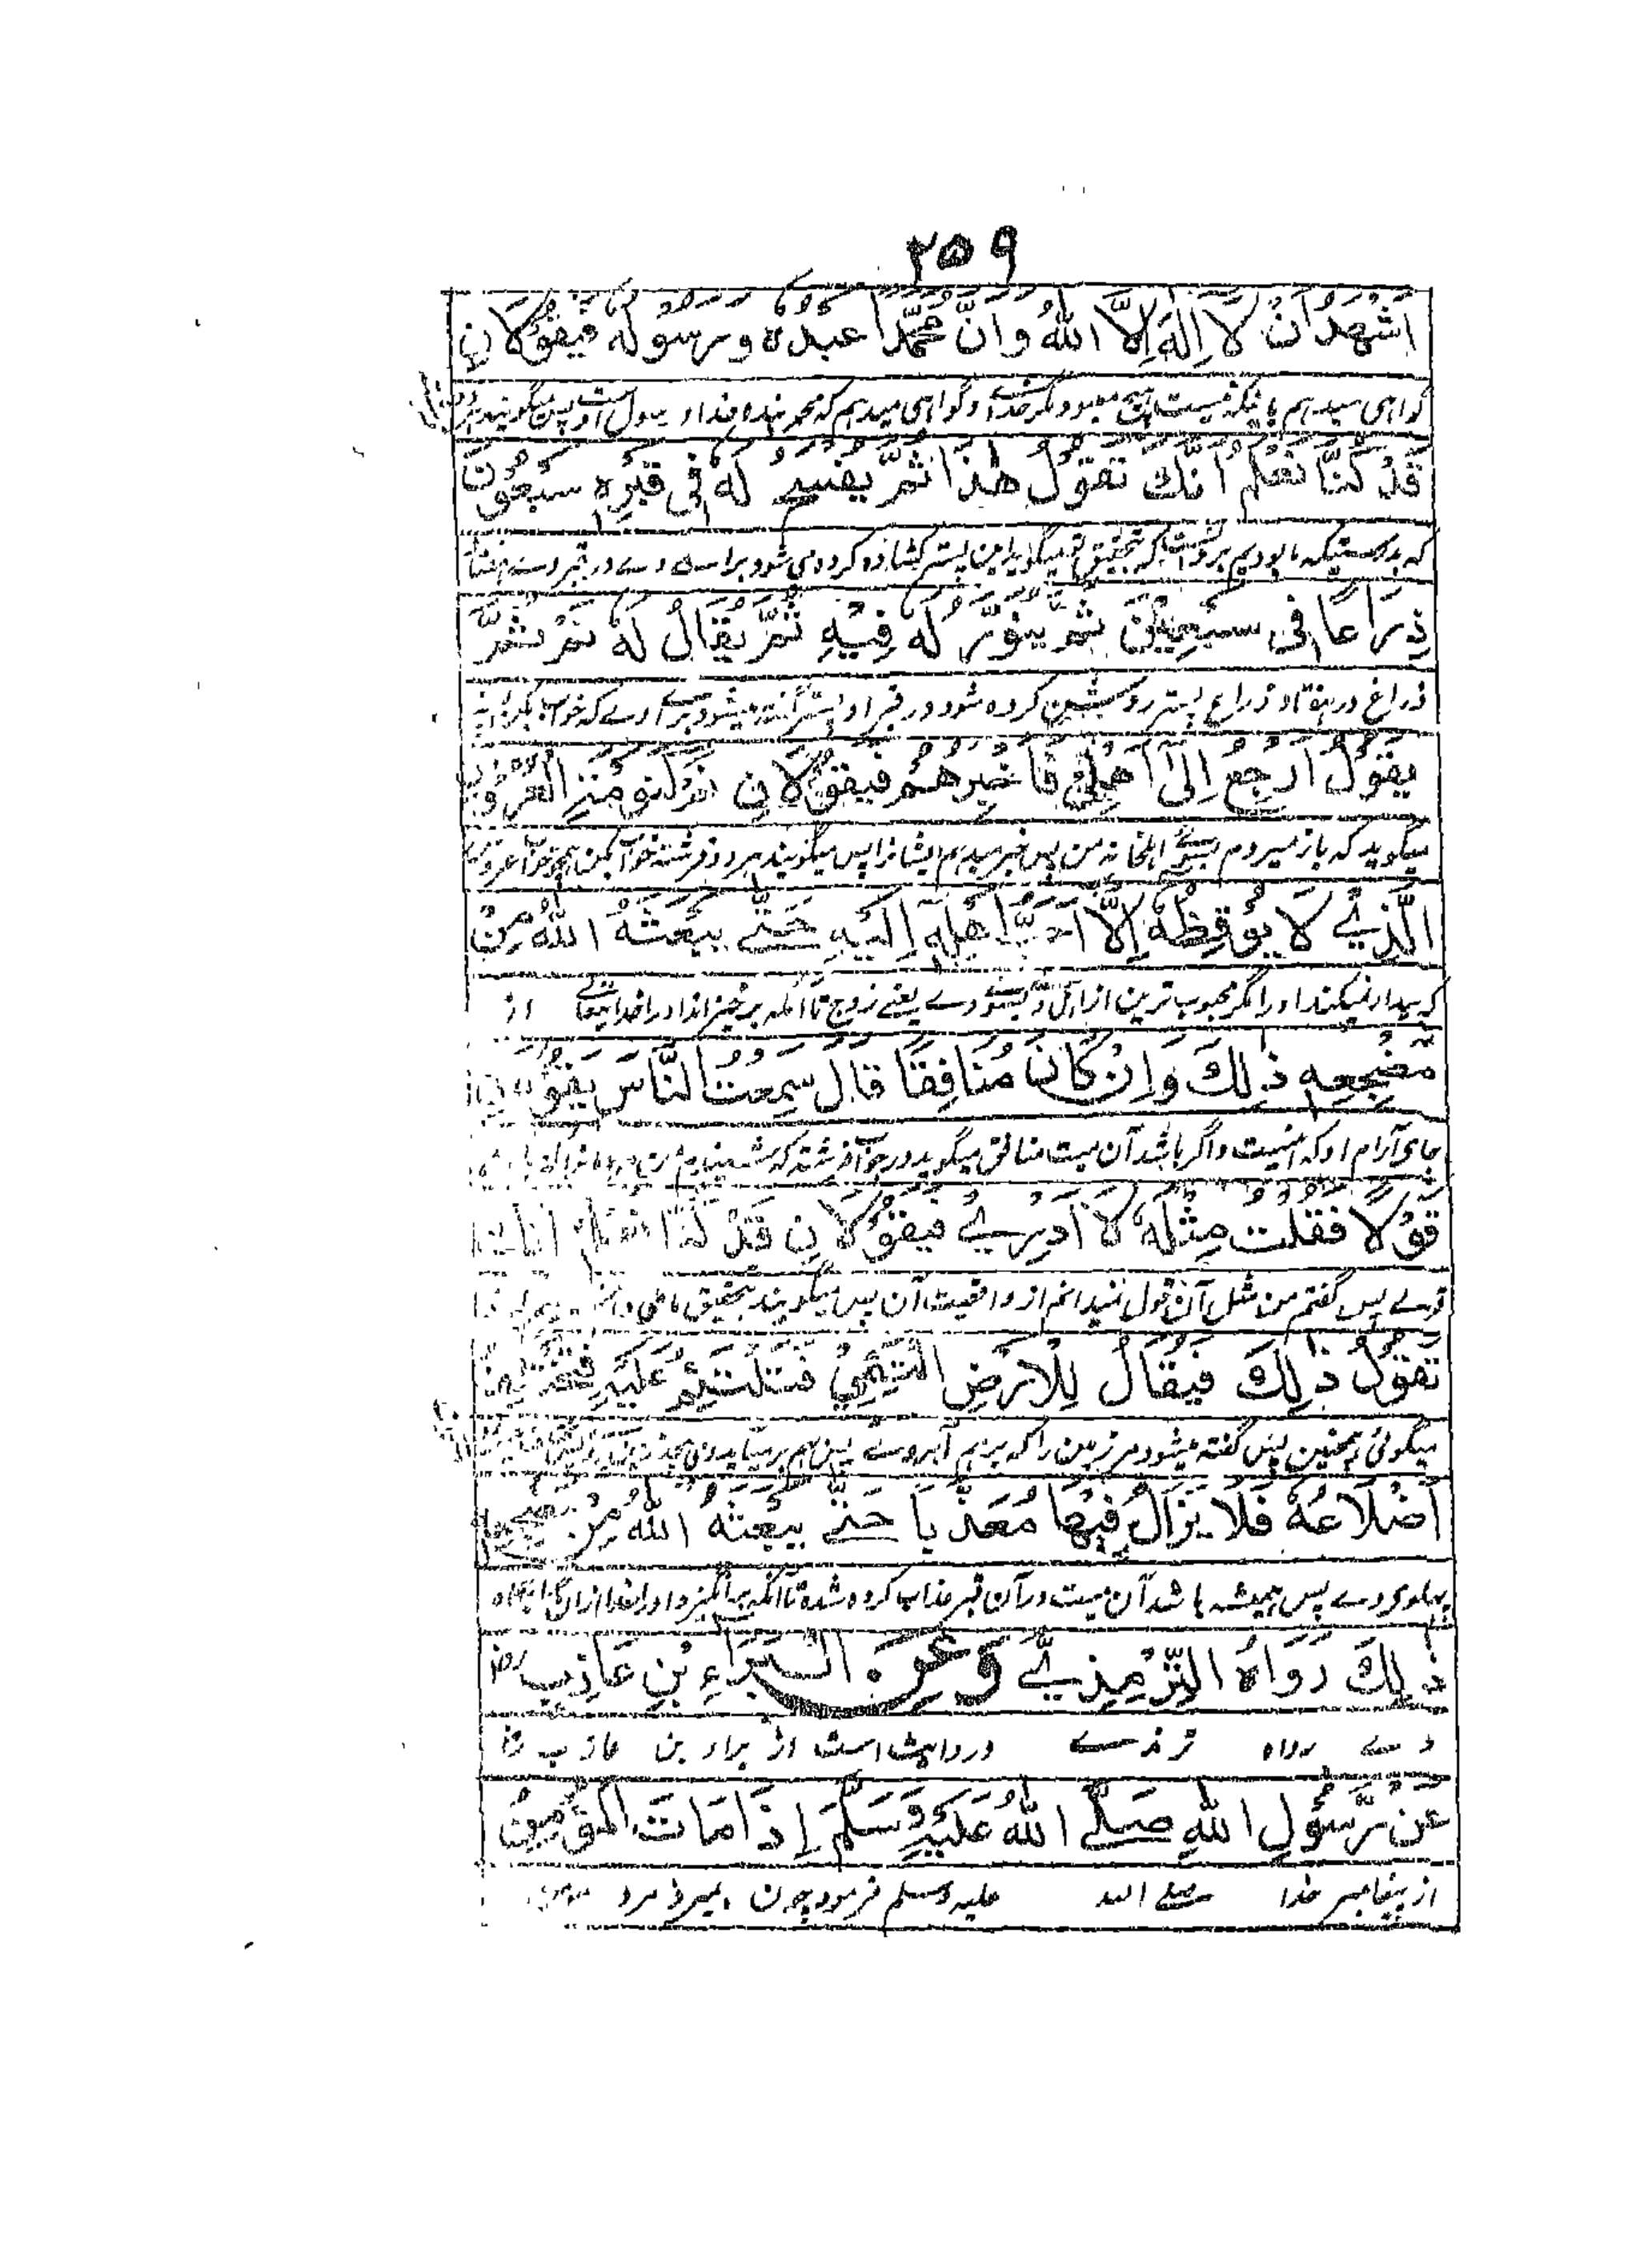 ۲۵۹
اَشْهَدُ اَنْ لَا اِلٰهَ اِلَّا اللّٰهُ وَاَنَّ مُحَمَّدًا عَبْدُهٗ وَرَسُوْلُهٗ فَيَقُوْلَانِ
گواہی میدہم باینکہ نیست ہیچ معبود مگر خدا و گواہی میدہم کہ محمد بندہ خدا و رسول اوست پس میگویند
قَدْ كُنَّا نَعْلَمُ اَنَّكَ تَقُوْلُ هٰذَا ثُمَّ يُفْسَحُ لَهٗ فِیْ قَبْرِهٖ سَبْعُوْنَ
کہ بدرستیکہ ما بودیم کہ تحقیق تو میگوید این پستر کشادہ کردہ می شود براے وے در قبر وے
ذِرَاعًا فِیْ سَبْعِيْنَ ثُمَّ يُنَوَّرُ لَهٗ فِيْهِ ثُمَّ يُقَالُ لَهٗ نَمْ ثُمَّ
ذراع در ہفتاد ذراع پستر روشن کردہ شود در قبر او پستر گفتہ میشود براے وے کہ خواب بکن
يَقُوْلُ اَرْجِعُ اِلٰی اَهْلِیْ فَاُخْبِرُهُمْ فَيَقُوْلَانِ نَمْ كَنَوْمَةِ الْعَرُوْسِ
میگوید کہ باز میروم بسوے اہلخانہ من پس خبر میدہم ایشانرا پس میگویند ہر دو فرشتہ خواب بکن ہمچو خواب عروس
الَّذِیْ لَا يُوْقِظُهٗ اِلَّا اَحَبُّ اَهْلِهٖ اِلَيْهِ حَتّٰی يَبْعَثَهُ اللّٰهُ مِنْ
کہ بیدار نمیکند او را مگر محبوب ترین از اہل او بسوے وے یعنے زوج تا آنکہ بر خیزاند او را خدا تعالے از
مَضْجِعِهٖ ذٰلِكَ وَاِنْ كَانَ مُنَافِقًا قَالَ سَمِعْتُ النَّاسَ يَقُوْلُوْنَ
جای آرام او کہ اینست و اگر باشد آن میت منافق میگوید در جواب فرشتہ کہ شنیدم
قَوْلًا فَقُلْتُ مِثْلَهٗ لَا اَدْرِیْ فَيَقُوْلَانِ قَدْ كُنَّا نَعْلَمُ اَنَّكَ
قولے پس گفتم من مثل آن قول نمیدانم از واقعیت آن پس میگویند بتحقیق ما
تَقُوْلُ ذٰلِكَ فَيُقَالُ لِلْاَرْضِ الْتَئِمِیْ فَتَلْتَئِمُ عَلَيْهِ فَتَخْتَلِفُ
میگوئی ہمچنین پس گفتہ میشود مر زمین را کہ بہم آ بر وے پس بہم
اَضْلَاعُهٗ فَلَا يَزَالُ فِيْهَا مُعَذَّبًا حَتّٰی يَبْعَثَهُ اللّٰهُ مِنْ مَضْجِعِهٖ
پہلوی وے پس ہمیشہ باشد آن میت در آن قبر عذاب کردہ شدہ تا آنکہ بر انگیزد او را خدا ازان
ذٰلِكَ رَوَاهُ التِّرْمِذِیُّ وَعَنِ الْبَرَاءِ بْنِ عَازِبٍ رض
وے رواہ ترمذے و روایت است از براء بن عازب رض
عَنْ رَّسُوْلِ اللّٰهِ صَلَّی اللّٰهُ عَلَيْهِ وَسَلَّمَ اِذَا مَاتَ الْمُؤْمِنُ
از پیغامبر خدا صلے اللہ علیہ وسلم فرمود چون بمیرد مرد